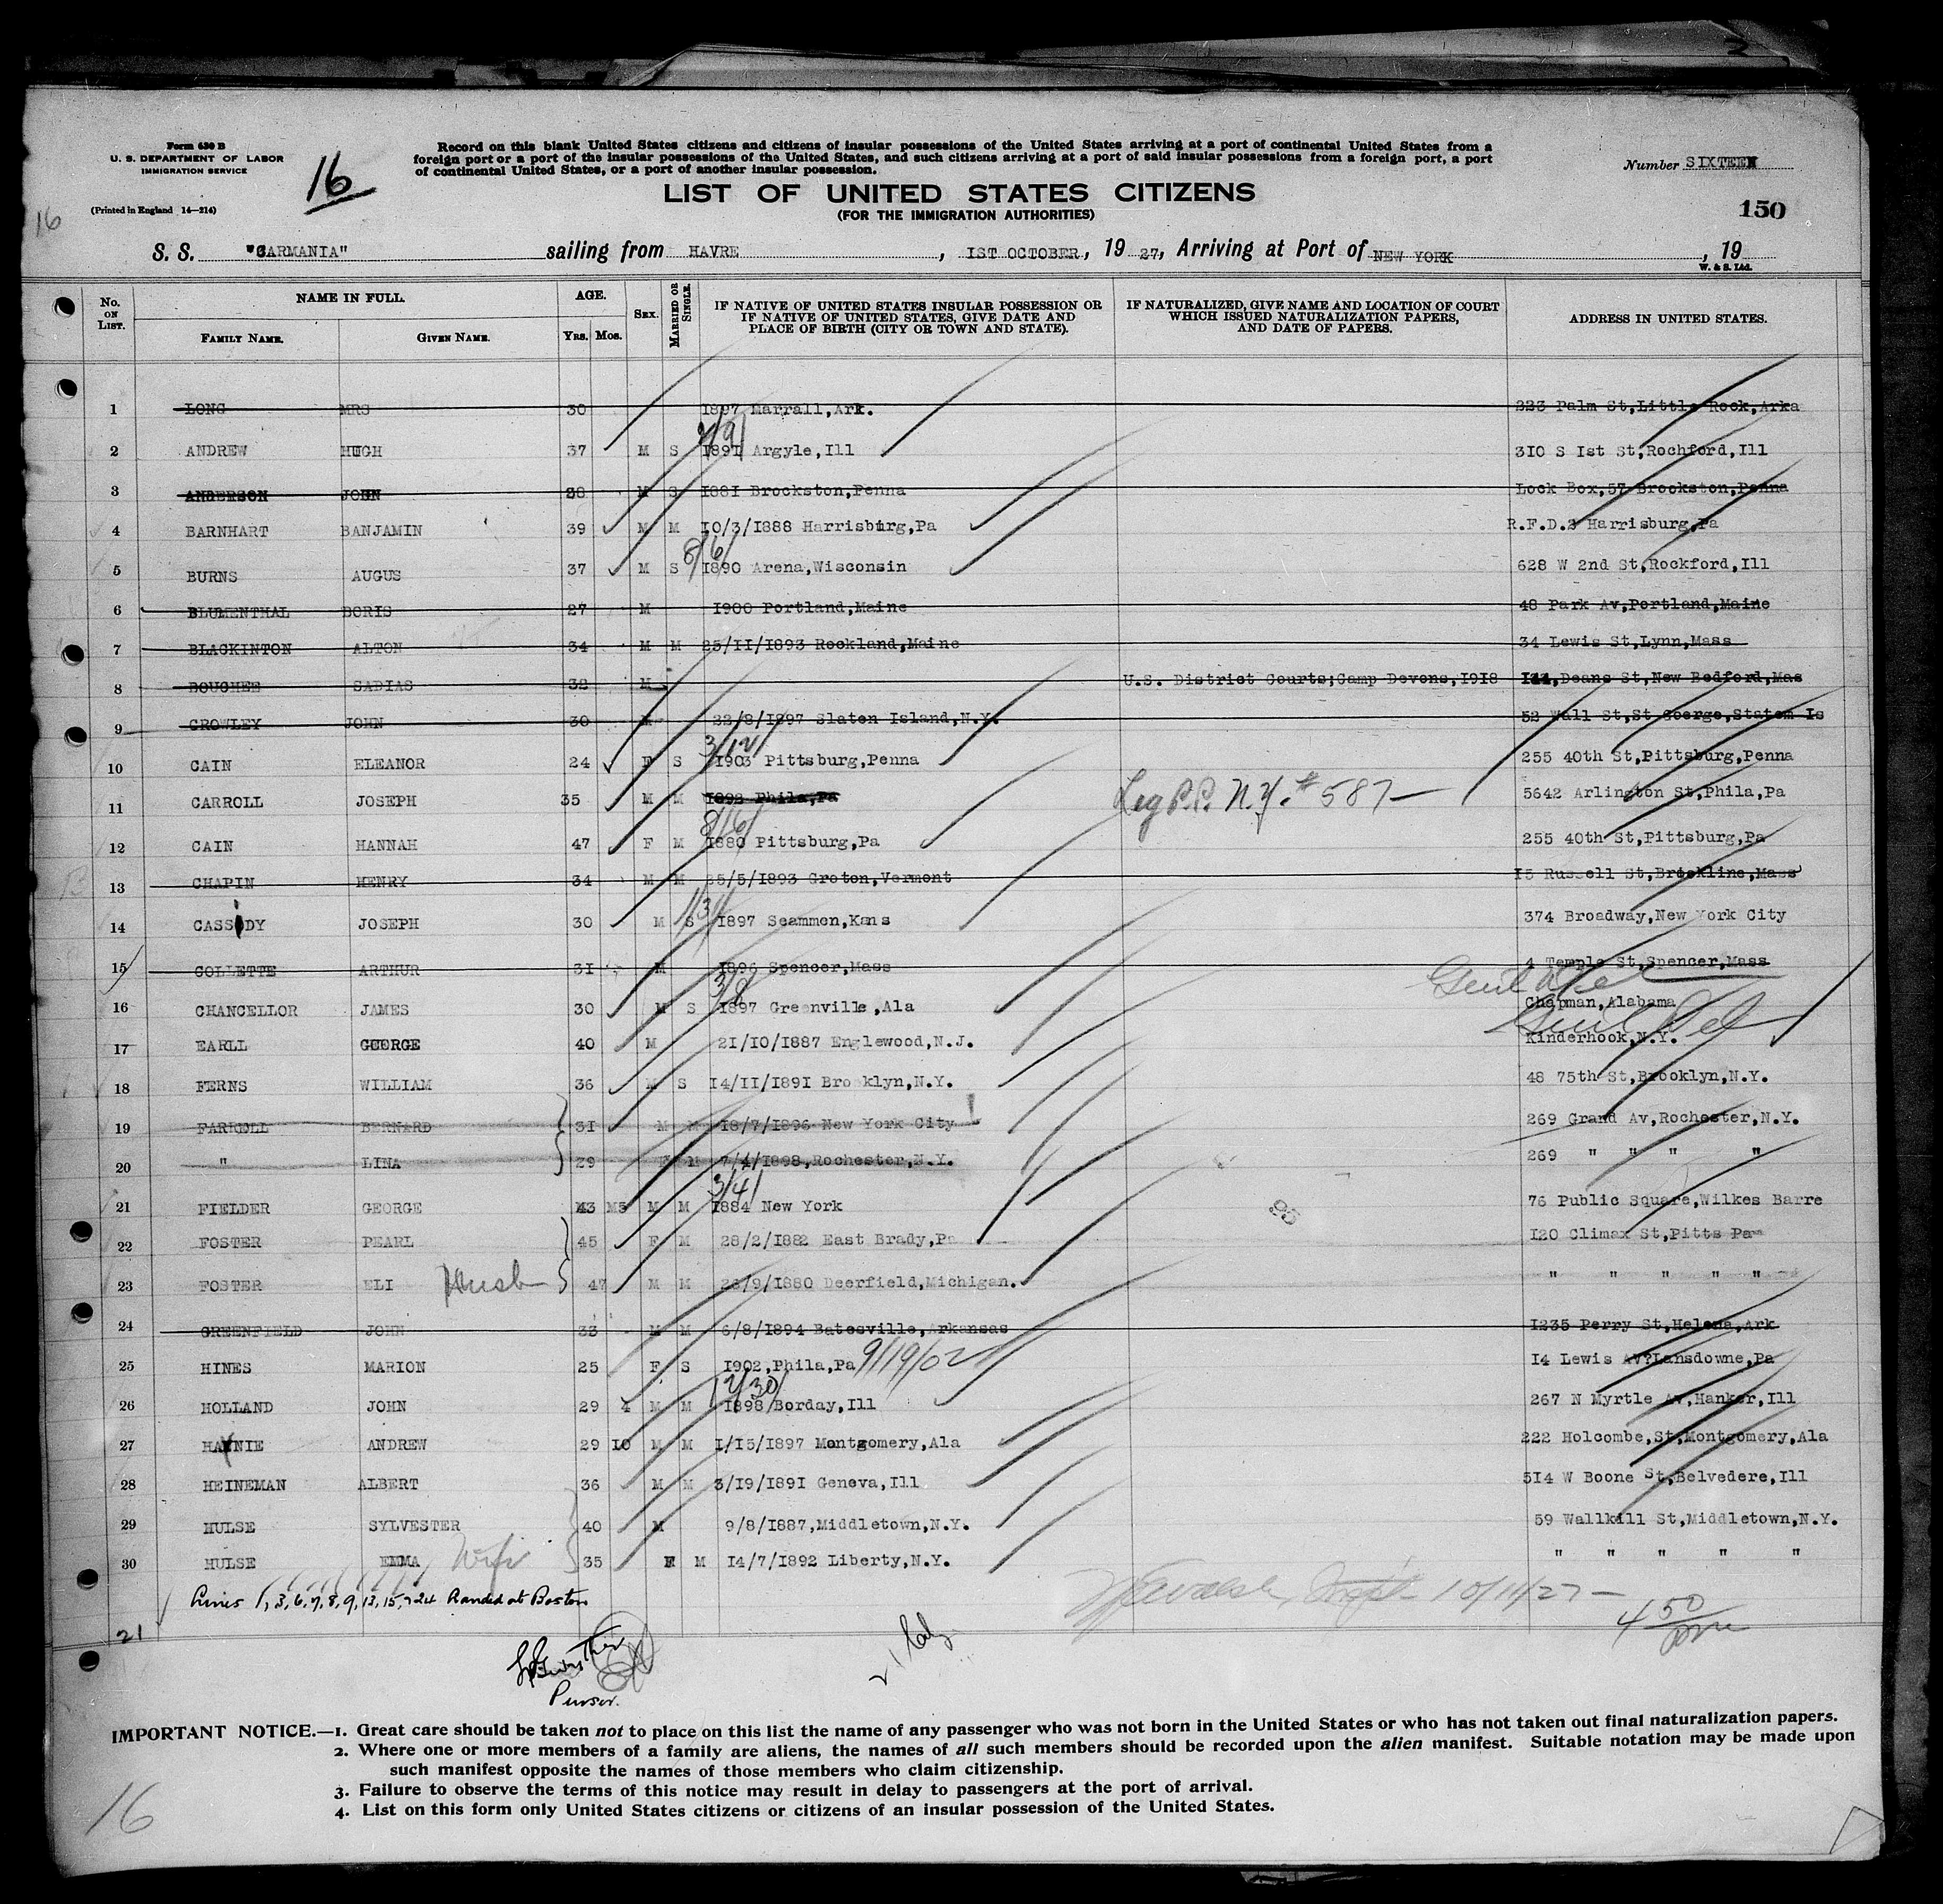 Form 630 B
U. S. DEPARTMENT OF LABOR
IMMIGRATION SERVICE
(Printed in England 14—214)
16
16
Record on this blank United States citizens and citizens of insular possessions of the United States arriving at a port of continental United States from a
foreign port or a port of the insular possessions of the United States, and such citizens arriving at a port of said insular possessions from a foreign port, a port
of continental United States, or a port of another insular possession.
LIST OF UNITED STATES CITIZENS
(FOR THE IMMIGRATION AUTHORITIES)
Number SIXTEEN
150
S. S. "CARMANIA" sailing from HAVRE, IST OCTOBER, 19 27, Arriving at Port of NEW YORK, 19
W. & S. Ltd.
No. ON LIST. NAME IN FULL. AGE. SEX. MARRIED OR SINGLE. IF NATIVE OF UNITED STATES INSULAR POSSESSION OR IF NATIVE OF UNITED STATES, GIVE DATE AND PLACE OF BIRTH (CITY OR TOWN AND STATE). IF NATURALIZED, GIVE NAME AND LOCATION OF COURT WHICH ISSUED NATURALIZATION PAPERS, AND DATE OF PAPERS. ADDRESS IN UNITED STATES.
FAMILY NAME. GIVEN NAME. YRS. MOS.
1 LONG MRS 30 1897 Marrall,Ark. 223 Palm St,Little Rock,Arka
2 ANDREW HUGH 37 M S 1891 Argyle,Ill 310 S 1st St,Rochford,Ill
3 ANDERSON JOHN 28 M S 1881 Brockston,Penna Lock Box,57 Brockston,Penna
4 BARNHART BANJAMIN 39 M M 10/3/1888 Harrisburg,Pa R.F.D.3 Harrisburg,Pa
5 BURNS AUGUS 37 M S 8/6/ 1890 Arena,Wisconsin 628 W 2nd St,Rockford,Ill
6 BLUMENTHAL BORIS 27 M 1900 Portland,Maine 48 Park Av,Portland,Maine
7 BLACKINTON ALTON 34 M M 25/11/1893 Rockland,Maine 34 Lewis St,Lynn,Mass
8 BOUGHEE SADIAS 32 M U.S. District Courts;Camp Devons,1918 111,Deans St,New Bedford,Mas
9 CROWLEY JOHN 30 M 22/8/1897 Slaten Island,N.Y. 52 Wall St,St Goerge,Statem Is
10 CAIN ELEANOR 24 F S 3/12/ 1903 Pittsburg,Penna 255 40th St,Pittsburg,Penna
11 CARROLL JOSEPH 35 M M 1892 Phila,Pa Leg P.P. N.Y. #587— 5642 Arlington St,Phila,Pa
12 CAIN HANNAH 47 F M 8/16/ 1880 Pittsburg,Pa 255 40th St,Pittsburg,Pa
13 CHAPIN HENRY 34 M M 25/5/1893 Groton,Vermont 15 Russell St,Brookline,Mass
14 CASSIDY JOSEPH 30 M S 1/31/ 1897 Seammen,Kans 374 Broadway,New York City
15 COLLETTE ARTHUR 31 M 1896 Spencer,Mass 4 Temple St,Spencer,Mass
16 CHANCELLOR JAMES 30 M S 3/8/ 1897 Greenville,Ala Chapman,Alabama
17 EARLL GEORGE 40 M 21/10/1887 Englewood,N.J. Kinderhook,N.Y.
18 FERNS WILLIAM 36 M S 14/11/1891 Brooklyn,N.Y. 48 75th St,Brooklyn,N.Y.
19 FARRELL BERNARD 31 M M 18/7/1896 New York City 269 Grand Av,Rochester,N.Y.
20 " LINA 29 F M 7/4/1898,Rochester,N.Y. 269 " " " "
21 FIELDER GEORGE 43 M M 3/4/ 1884 New York 76 Public Square,Wilkes Barre
22 FOSTER PEARL 45 F M 28/2/1882 East Brady,Pa 120 Climax St,Pitts Pa
23 FOSTER ELI Husb 47 M M 28/9/1880 Deerfield,Michigan. " " " " "
24 GREENFIELD JOHN 33 M M 6/8/1894 Batesville,Arkansas 1235 Perry St,Helena,Ark
25 HINES MARION 25 F S 1902,Phila,Pa 9/19/02 14 Lewis AV?Lansdowne,Pa
26 HOLLAND JOHN 29 4 M M 12/30/ 1898 Borday,Ill 267 N Myrtle Av,Hanker,Ill
27 HAYNIE ANDREW 29 10 M M 1/15/1897 Montgomery,Ala 222 Holcombe,St,Montgomery,Ala
28 HEINEMAN ALBERT 36 M M 3/19/1891 Geneva,Ill 514 W Boone St,Belvedere,Ill
29 HULSE SYLVESTER 40 M 9/8/1887,Middletown,N.Y. 59 Wallkill St,Middletown,N.Y.
30 HULSE EMMA Wife 35 F M 14/7/1892 Liberty,N.Y. " " " " "
Lines 1,3,6,7,8,9,13,15,24 Landed at Boston
10/11/27—
21
450
Purser.
IMPORTANT NOTICE.—1. Great care should be taken not to place on this list the name of any passenger who was not born in the United States or who has not taken out final naturalization papers.
2. Where one or more members of a family are aliens, the names of all such members should be recorded upon the alien manifest. Suitable notation may be made upon
such manifest opposite the names of those members who claim citizenship.
3. Failure to observe the terms of this notice may result in delay to passengers at the port of arrival.
4. List on this form only United States citizens or citizens of an insular possession of the United States.
16